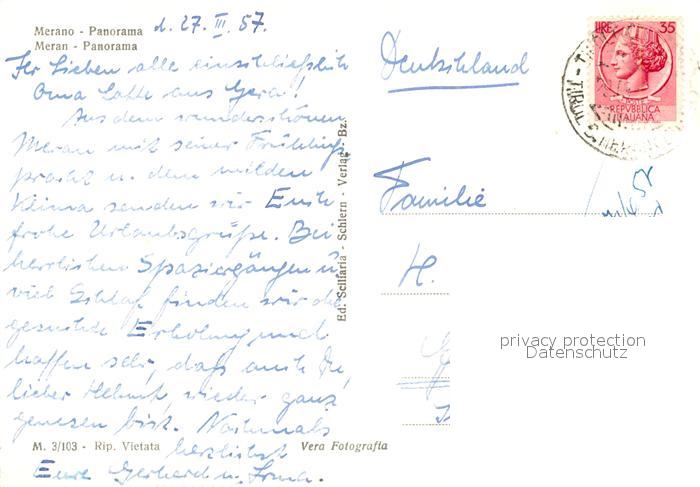 Merano - Panorama d. 27. III. 57.
Meran - Panorama
Ihr Lieben alle einschließlich
Oma Lotte aus Gera!
Aus dem wunderschönen
Meran mit seiner Frühlings
pracht u. dem milden
Klima senden wir Euch
frohe Urlaubsgrüße. Bei
herrlichen Spaziergängen u.
viel Schlaf finden wir die
gesuchte Erholung und
hoffen sehr, daß auch Du,
lieber Helmut, wieder ganz
genesen bist. Nochmals
herzlichst
Eure Gerhard u.
M. 3/103 - Rip. Vietata
Vera Fotografia
Ed. Scilfaria - Schlern - Verlag Bz.
Deutschland
LIRE 35
REPVBBLICA
ITALIANA
Familie
H.
privacy protection
Datenschutz